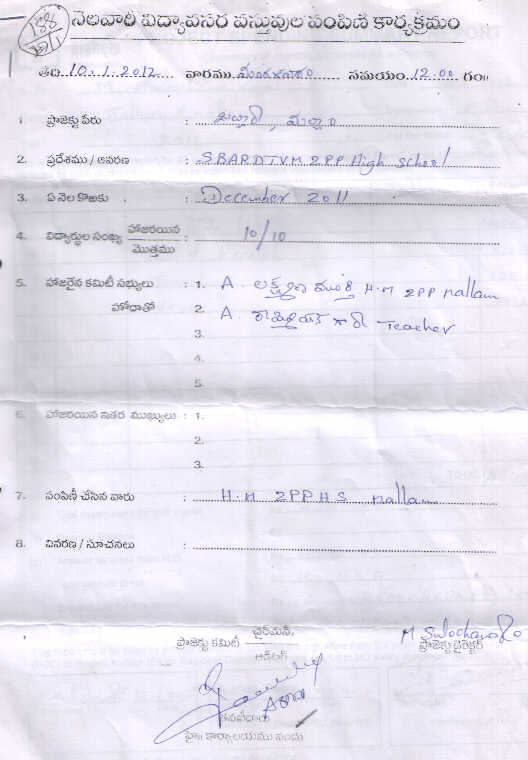 నెలవారీ విద్యావసర వస్తువుల పంపిణీ కార్యక్రమం
తేది 10.1.2012 వారము మంగళవారం సమయం 12.00 గం॥
1. ప్రాజెక్టు పేరు : మల్లాం
2. ప్రదేశము / ఆవరణ : SBARDTVM ZPP High School
3. ఏ నెల కొఱకు : December 2011
4. విద్యార్థుల సంఖ్య హాజరయిన / మొత్తము : 10/10
5. హాజరైన కమిటీ సభ్యులు : 1. A. లక్ష్మణ మూర్తి H.M ZPP Mallam
హోదాతో 2. A. Teacher
3.
4.
5.
6. హాజరయిన ఇతర ముఖ్యులు : 1.
2.
3.
7. పంపిణీ చేసిన వారు : H.M ZPP HS Mallam
8. వివరణ / సూచనలు :
ప్రాజెక్టు కమిటీ ఛైర్మన్. / ఆడిటర్
M Sulochana
ప్రాజెక్టు డైరెక్టర్
హై॥ కార్యాలయము నందు